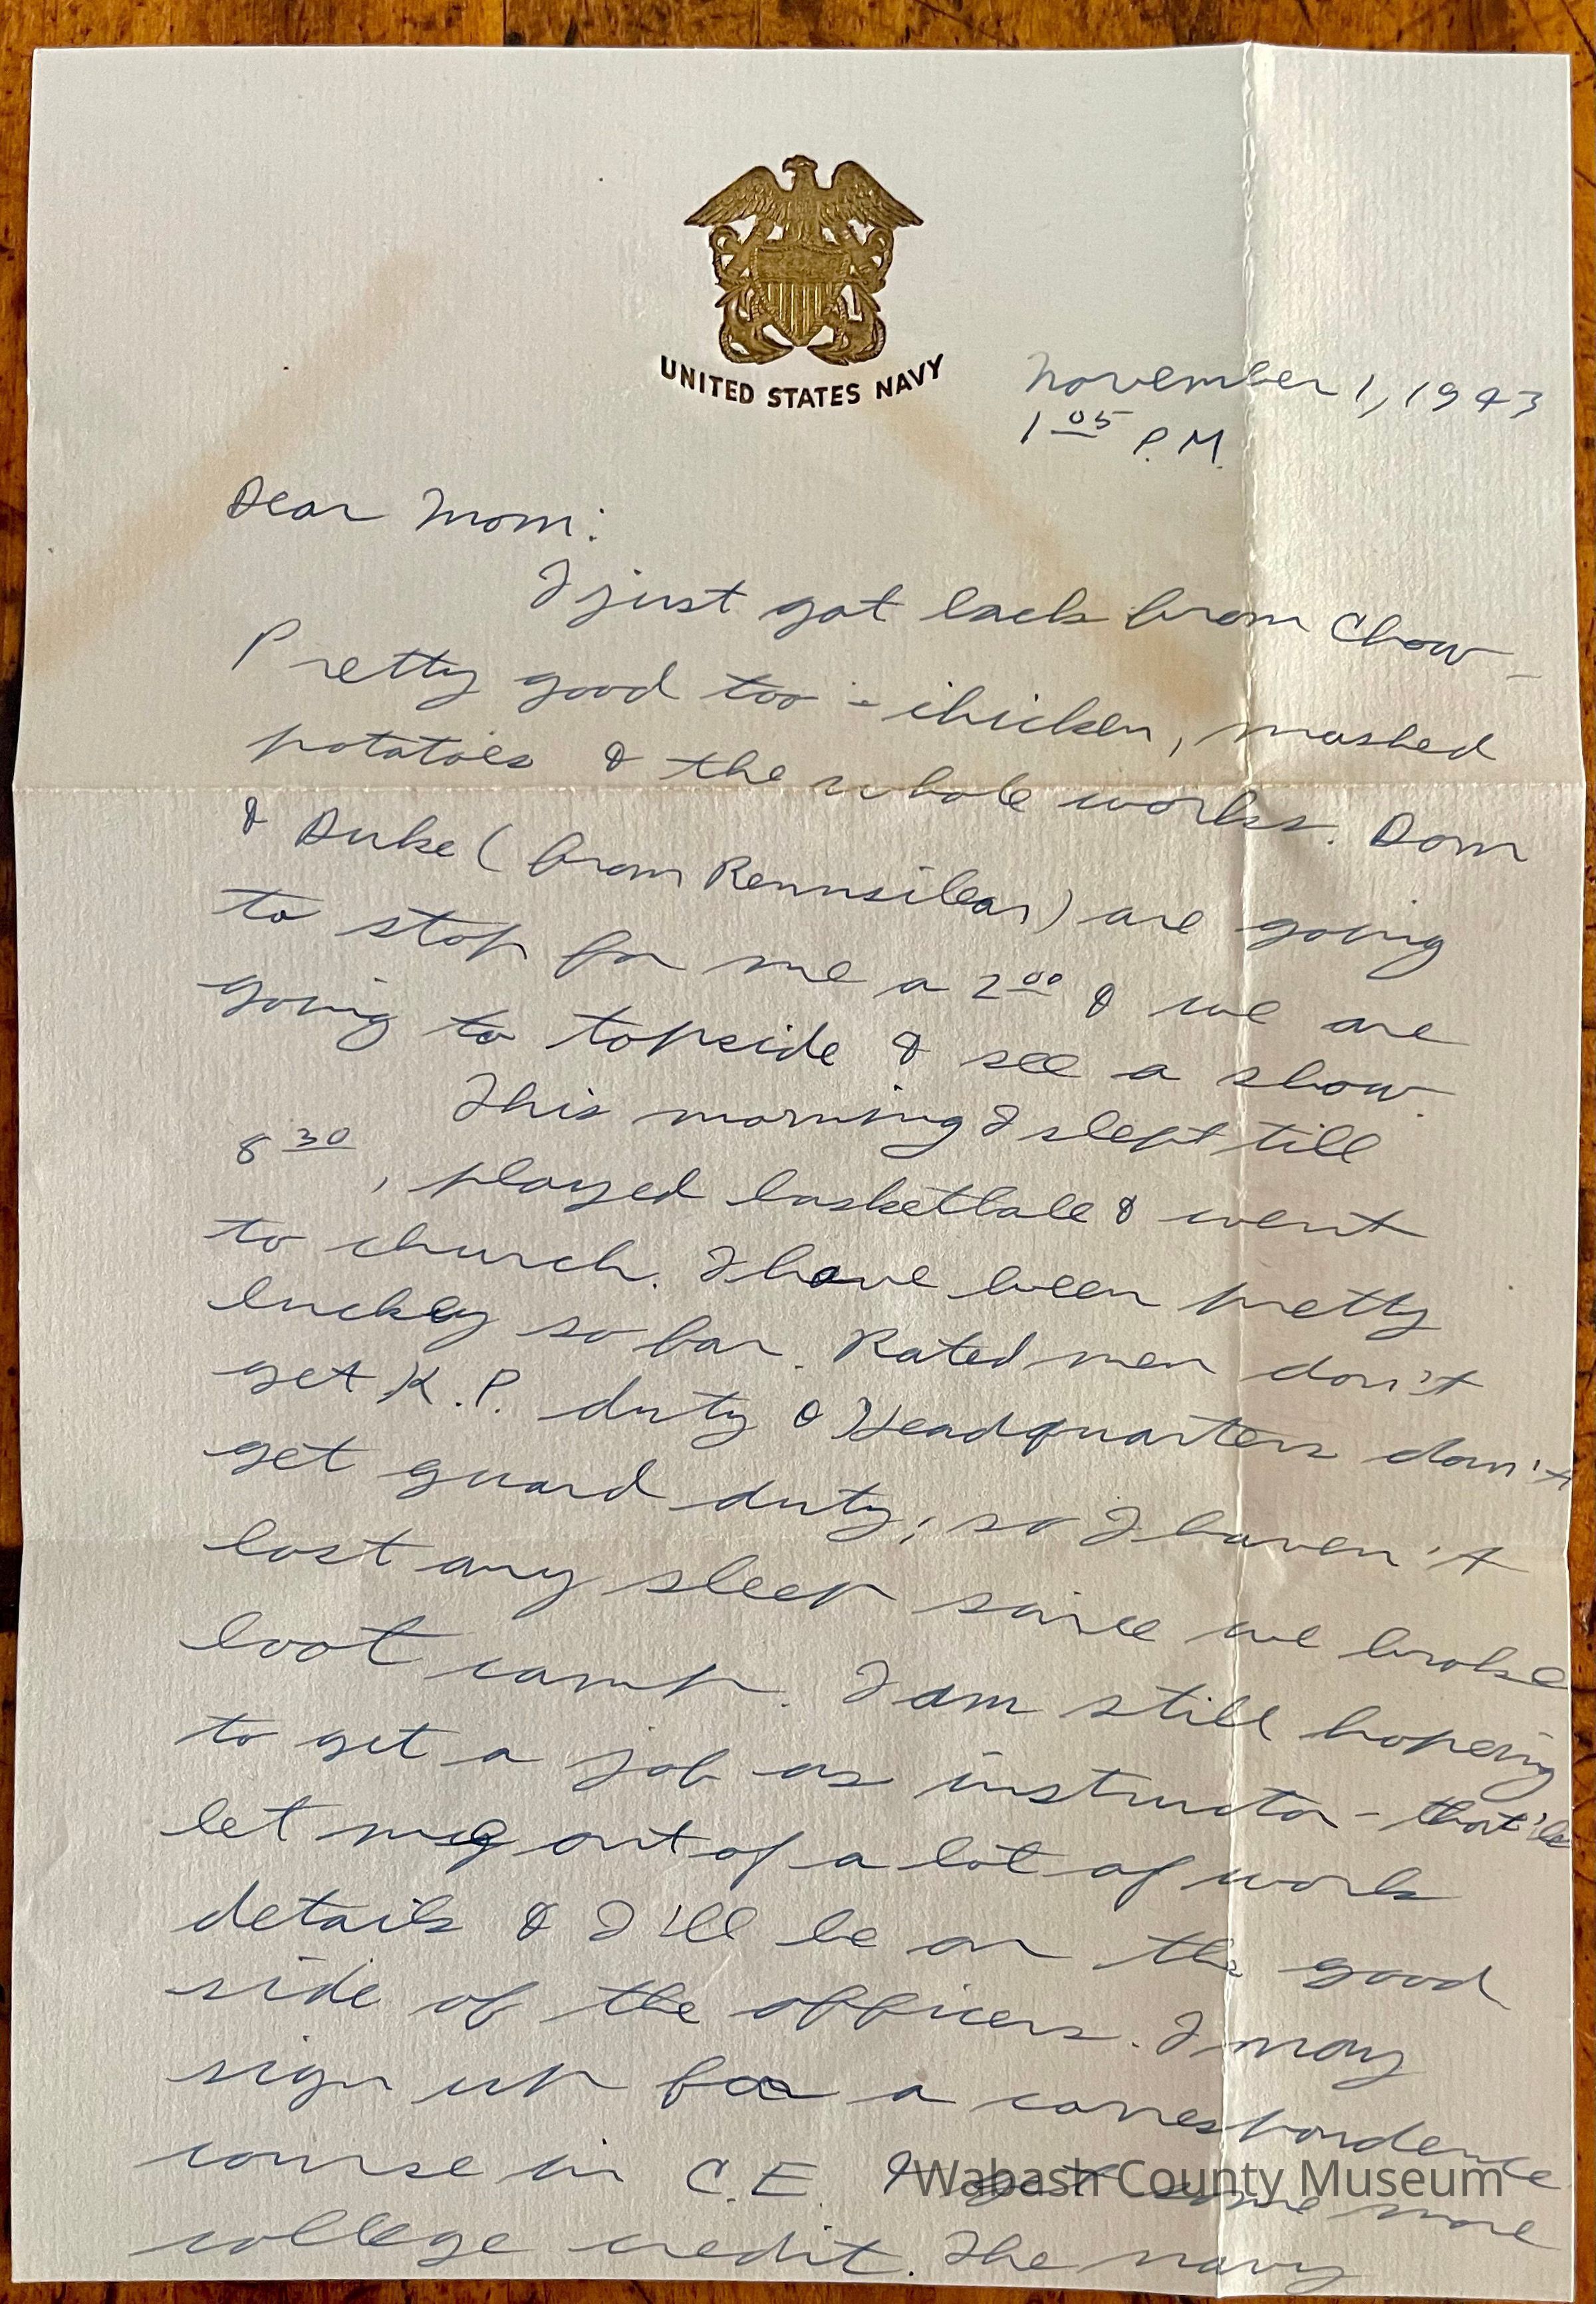 UNITED STATES NAVY
November 1, 1943
1 05 P.M.
Dear Mom:
I just got back from Chow -
Pretty good too - chicken, mashed
potatoes & the whole works. Dom
& Duke (from Rennsilear) are going
to stop for me a 2 00 & we are
going to topside & see a show.
This morning I slept till
8 30, played basketball & went
to church. I have been pretty
luckey so far. Rated men don't
get K.P. duty & Headquarters don't
get guard duty; so I haven't
lost any sleep since we broke
boot camp. I am still hopeing
to get a job as instructor - that'll
let me out of a lot of work
details & I'll be on the good
side of the officers. I may
sign up for a correspondence
course in C.E. & get some more
college credit. The navy
Wabash County Museum